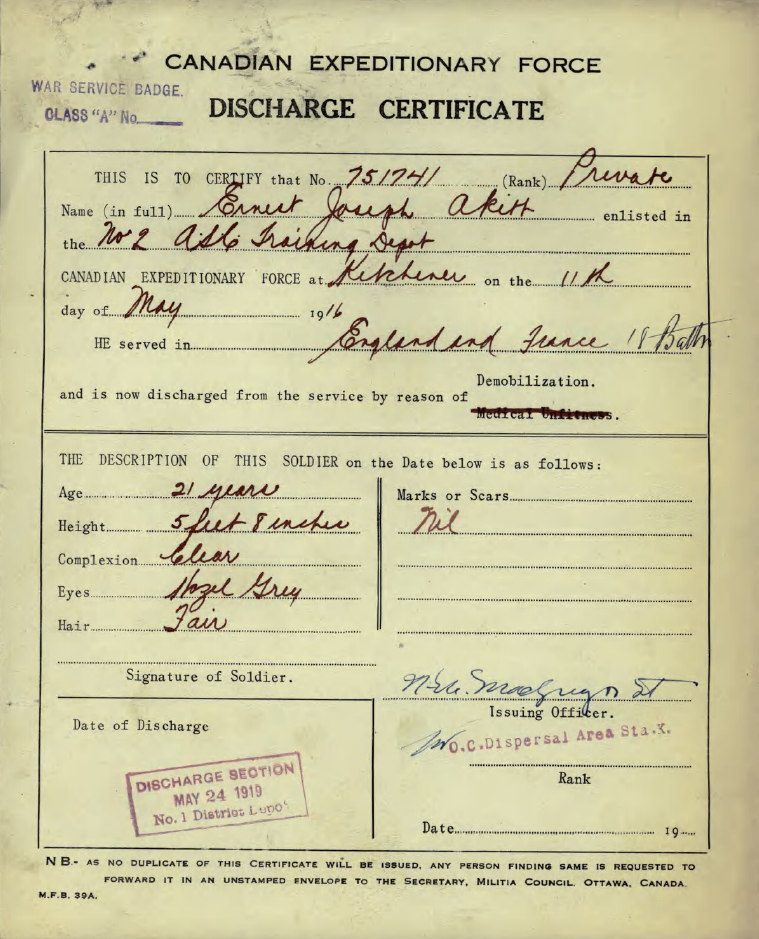 CANADIAN EXPEDITIONARY FORCE
WAR SERVICE BADGE.
CLASS "A" No.
DISCHARGE CERTIFICATE
THIS IS TO CERTIFY that No. 751741 (Rank) Private
Name (in full) Ernest Joseph Akitt enlisted in
the No 2 ASC Training Depot
CANADIAN EXPEDITIONARY FORCE at Kitchener on the 11th
day of May 1916
HE served in England and France 18 Battn
Demobilization.
and is now discharged from the service by reason of
Medical Unfitness.
THE DESCRIPTION OF THIS SOLDIER on the Date below is as follows:
Age 21 years
Height 5 feet 8 inches
Complexion Clear
Eyes Hazel Grey
Hair Fair
Marks or Scars
Nil
Signature of Soldier.
MacGregor Lt
Issuing Officer.
O.C. Dispersal Area Sta. K.
Rank
Date 19
Date of Discharge
DISCHARGE SECTION
MAY 24 1919
No. 1 District Depot
NB.- AS NO DUPLICATE OF THIS CERTIFICATE WILL BE ISSUED, ANY PERSON FINDING SAME IS REQUESTED TO
FORWARD IT IN AN UNSTAMPED ENVELOPE TO THE SECRETARY, MILITIA COUNCIL. OTTAWA, CANADA.
M.F.B. 39A.